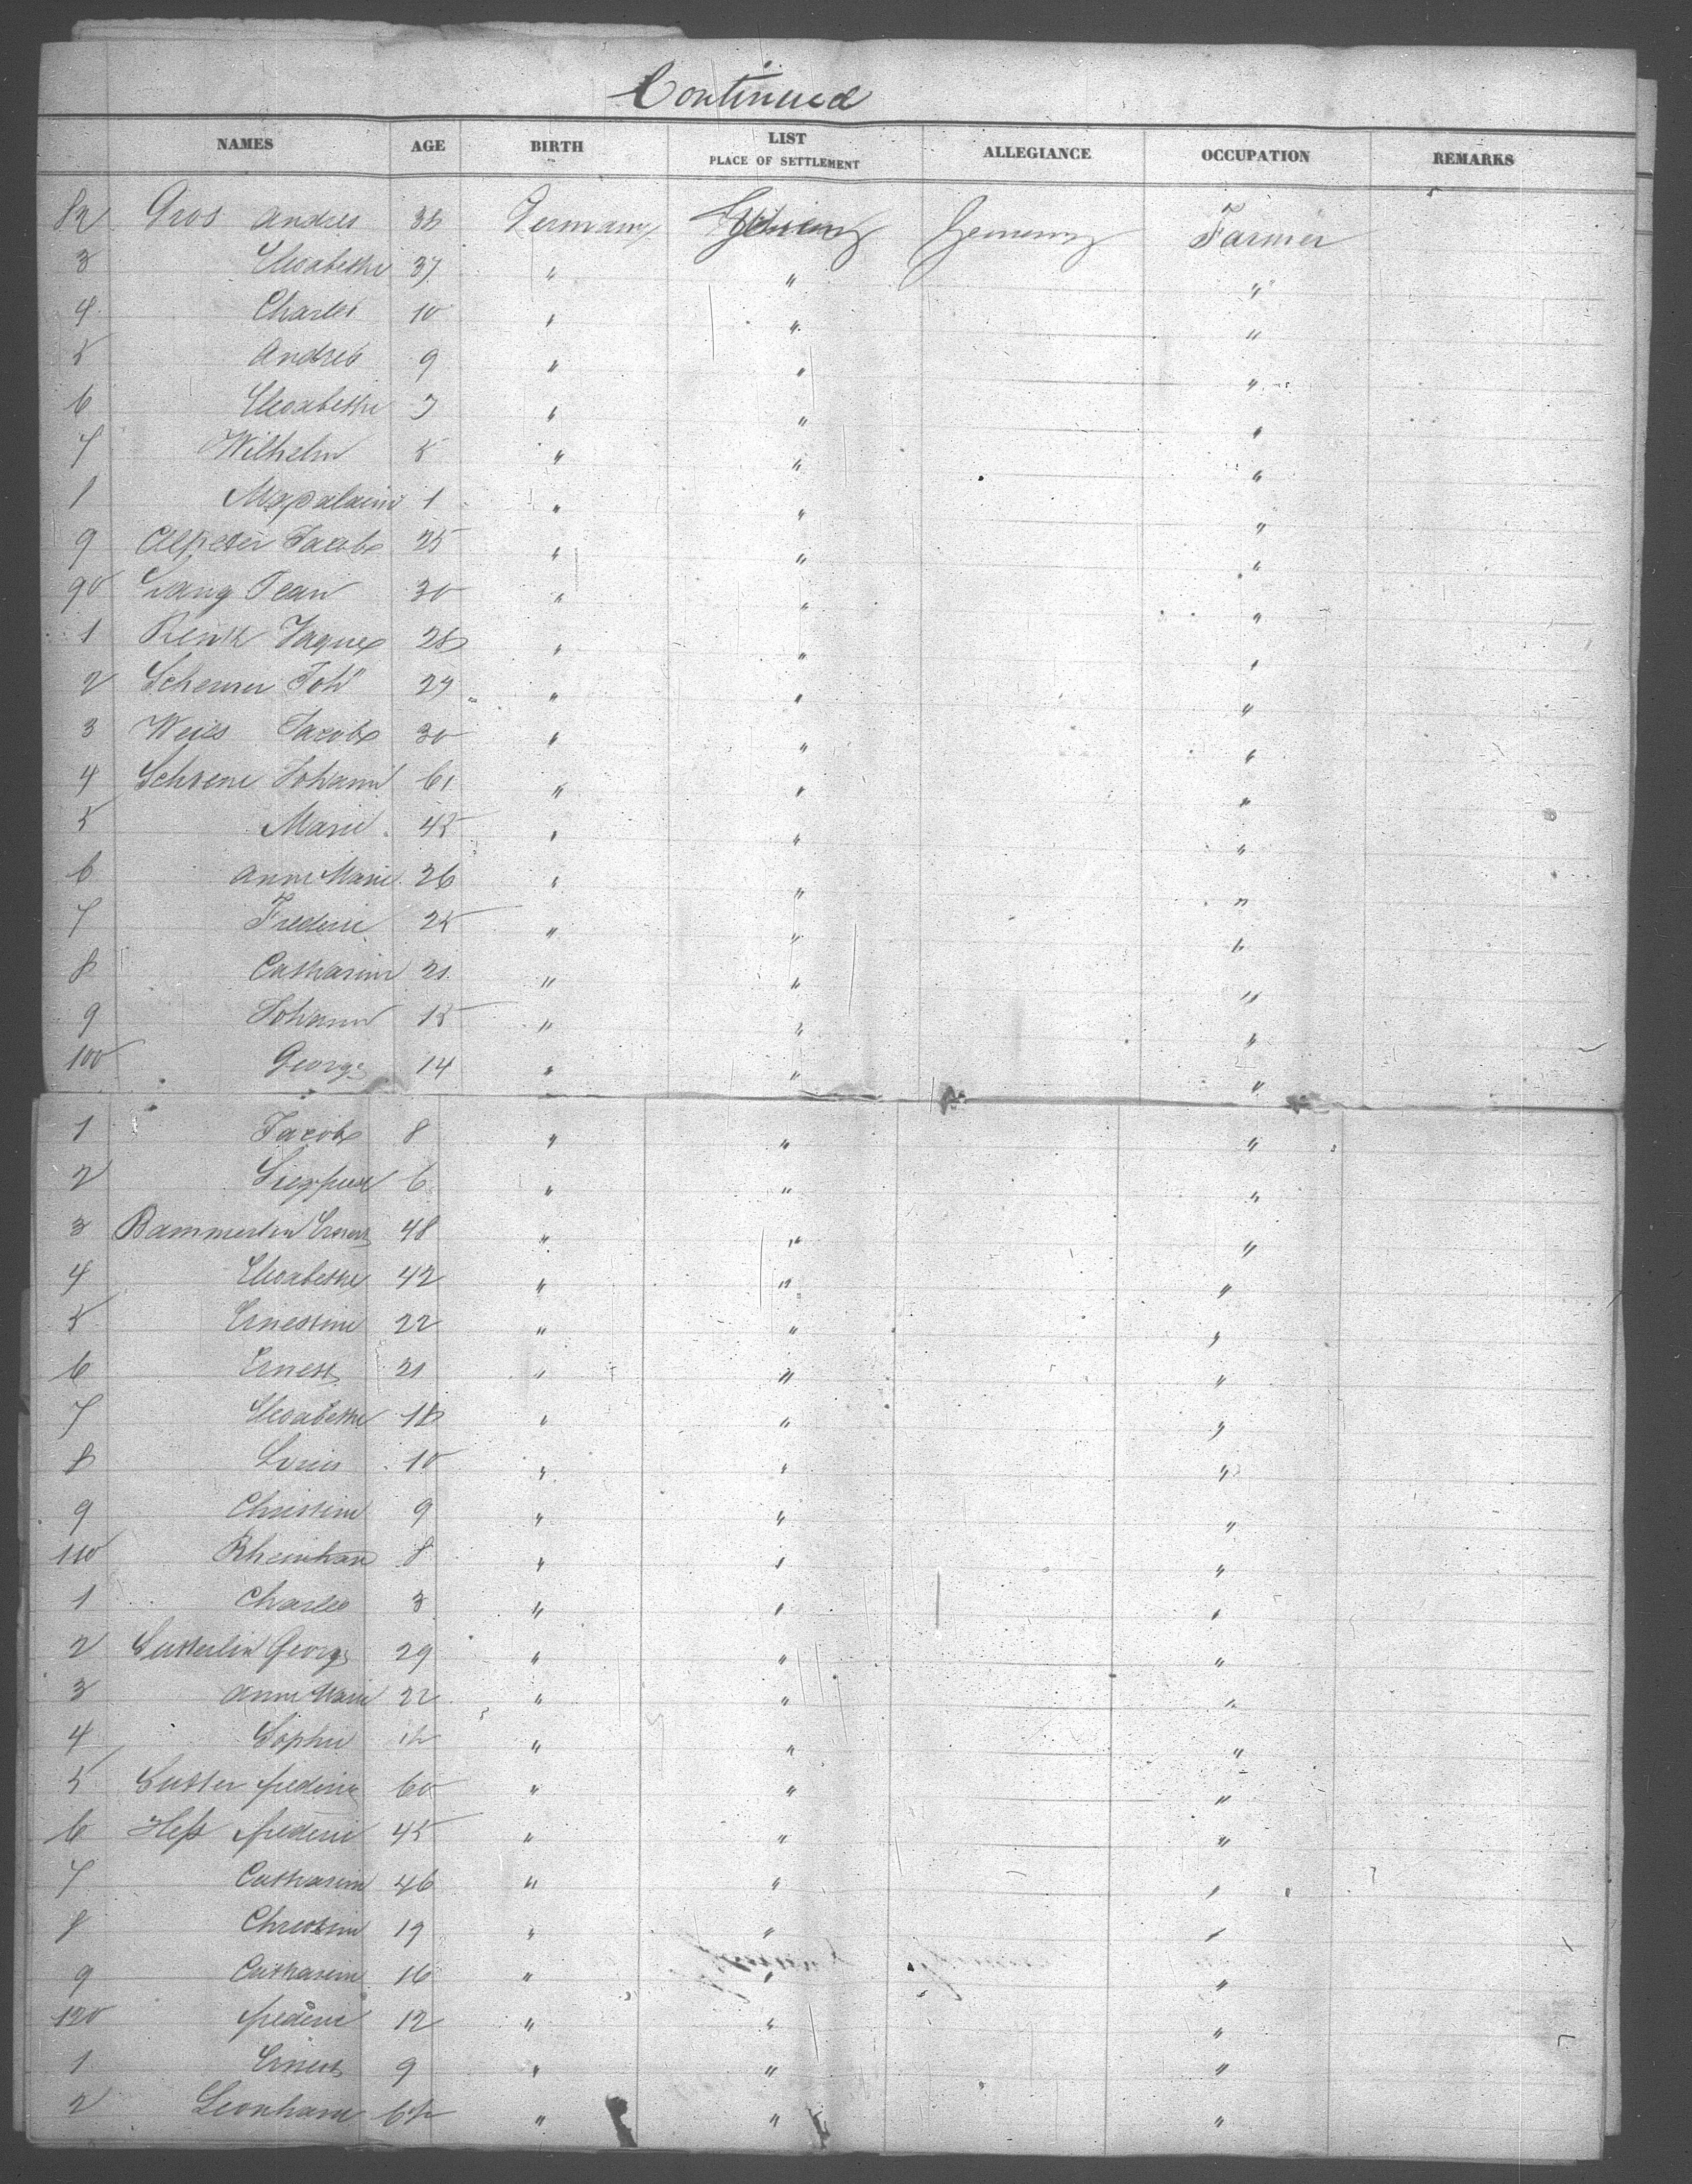 Continued
NAMES AGE BIRTH LIST PLACE OF SETTLEMENT ALLEGIANCE OCCUPATION REMARKS
82 Gros Andres 38 Germany Germany Farmer
3 Elisabethe 37 " " "
4 Charles 10 " " "
5 Andres 9 " " "
6 Elisabethe 7 " " "
7 Wilhelm 5 " " "
1 1 " " "
9 Jacob 25 " " "
90 Lang Jean 30 " " "
1 Jaques 28 " " "
2 Joh" 29 " " "
3 Weiss Jacob 30 " " "
4 Schoene Johann 61 " " "
5 Marie 45 " " "
6 Anne Marie 26 " " "
7 Frederic 25 " " "
8 Catharine 21 " " "
9 Johann 15 " " "
100 George 14 " " "
1 Jacob 8 " " "
2 6 " " "
3 Bammerlin Ernest 48 " " "
4 Elisabethe 42 " " "
5 Ernestine 22 " " "
6 Ernest 21 " " "
7 Elisabethe 18 " " "
8 Louis 10 " " "
9 Christine 9 " " "
110 Rheinhard 8 " " "
1 Charles 3 " " "
2 Sutterlin George 29 " " "
3 Anne Marie 22 " " "
4 Sophie " " "
5 Sutter frederic 60 " " "
6 Heß frederic 45 " " "
7 Catharine 46 " " "
8 Christine 19 " " "
9 Catharine 16 " " "
120 frederic 12 " " "
1 Ernest 9 " " "
2 Leonhard " " "